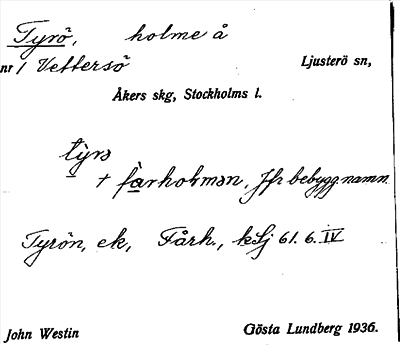 Tyrö, holme å
nr 1 Vettersö Ljusterö sn,
Åkers skg, Stockholms l.
tyrə
+ fårholmən, Jfr bebygg.namn
Tyrön, ek, Fårh., kLj 61. 6. IV
John Westin Gösta Lundberg 1936.